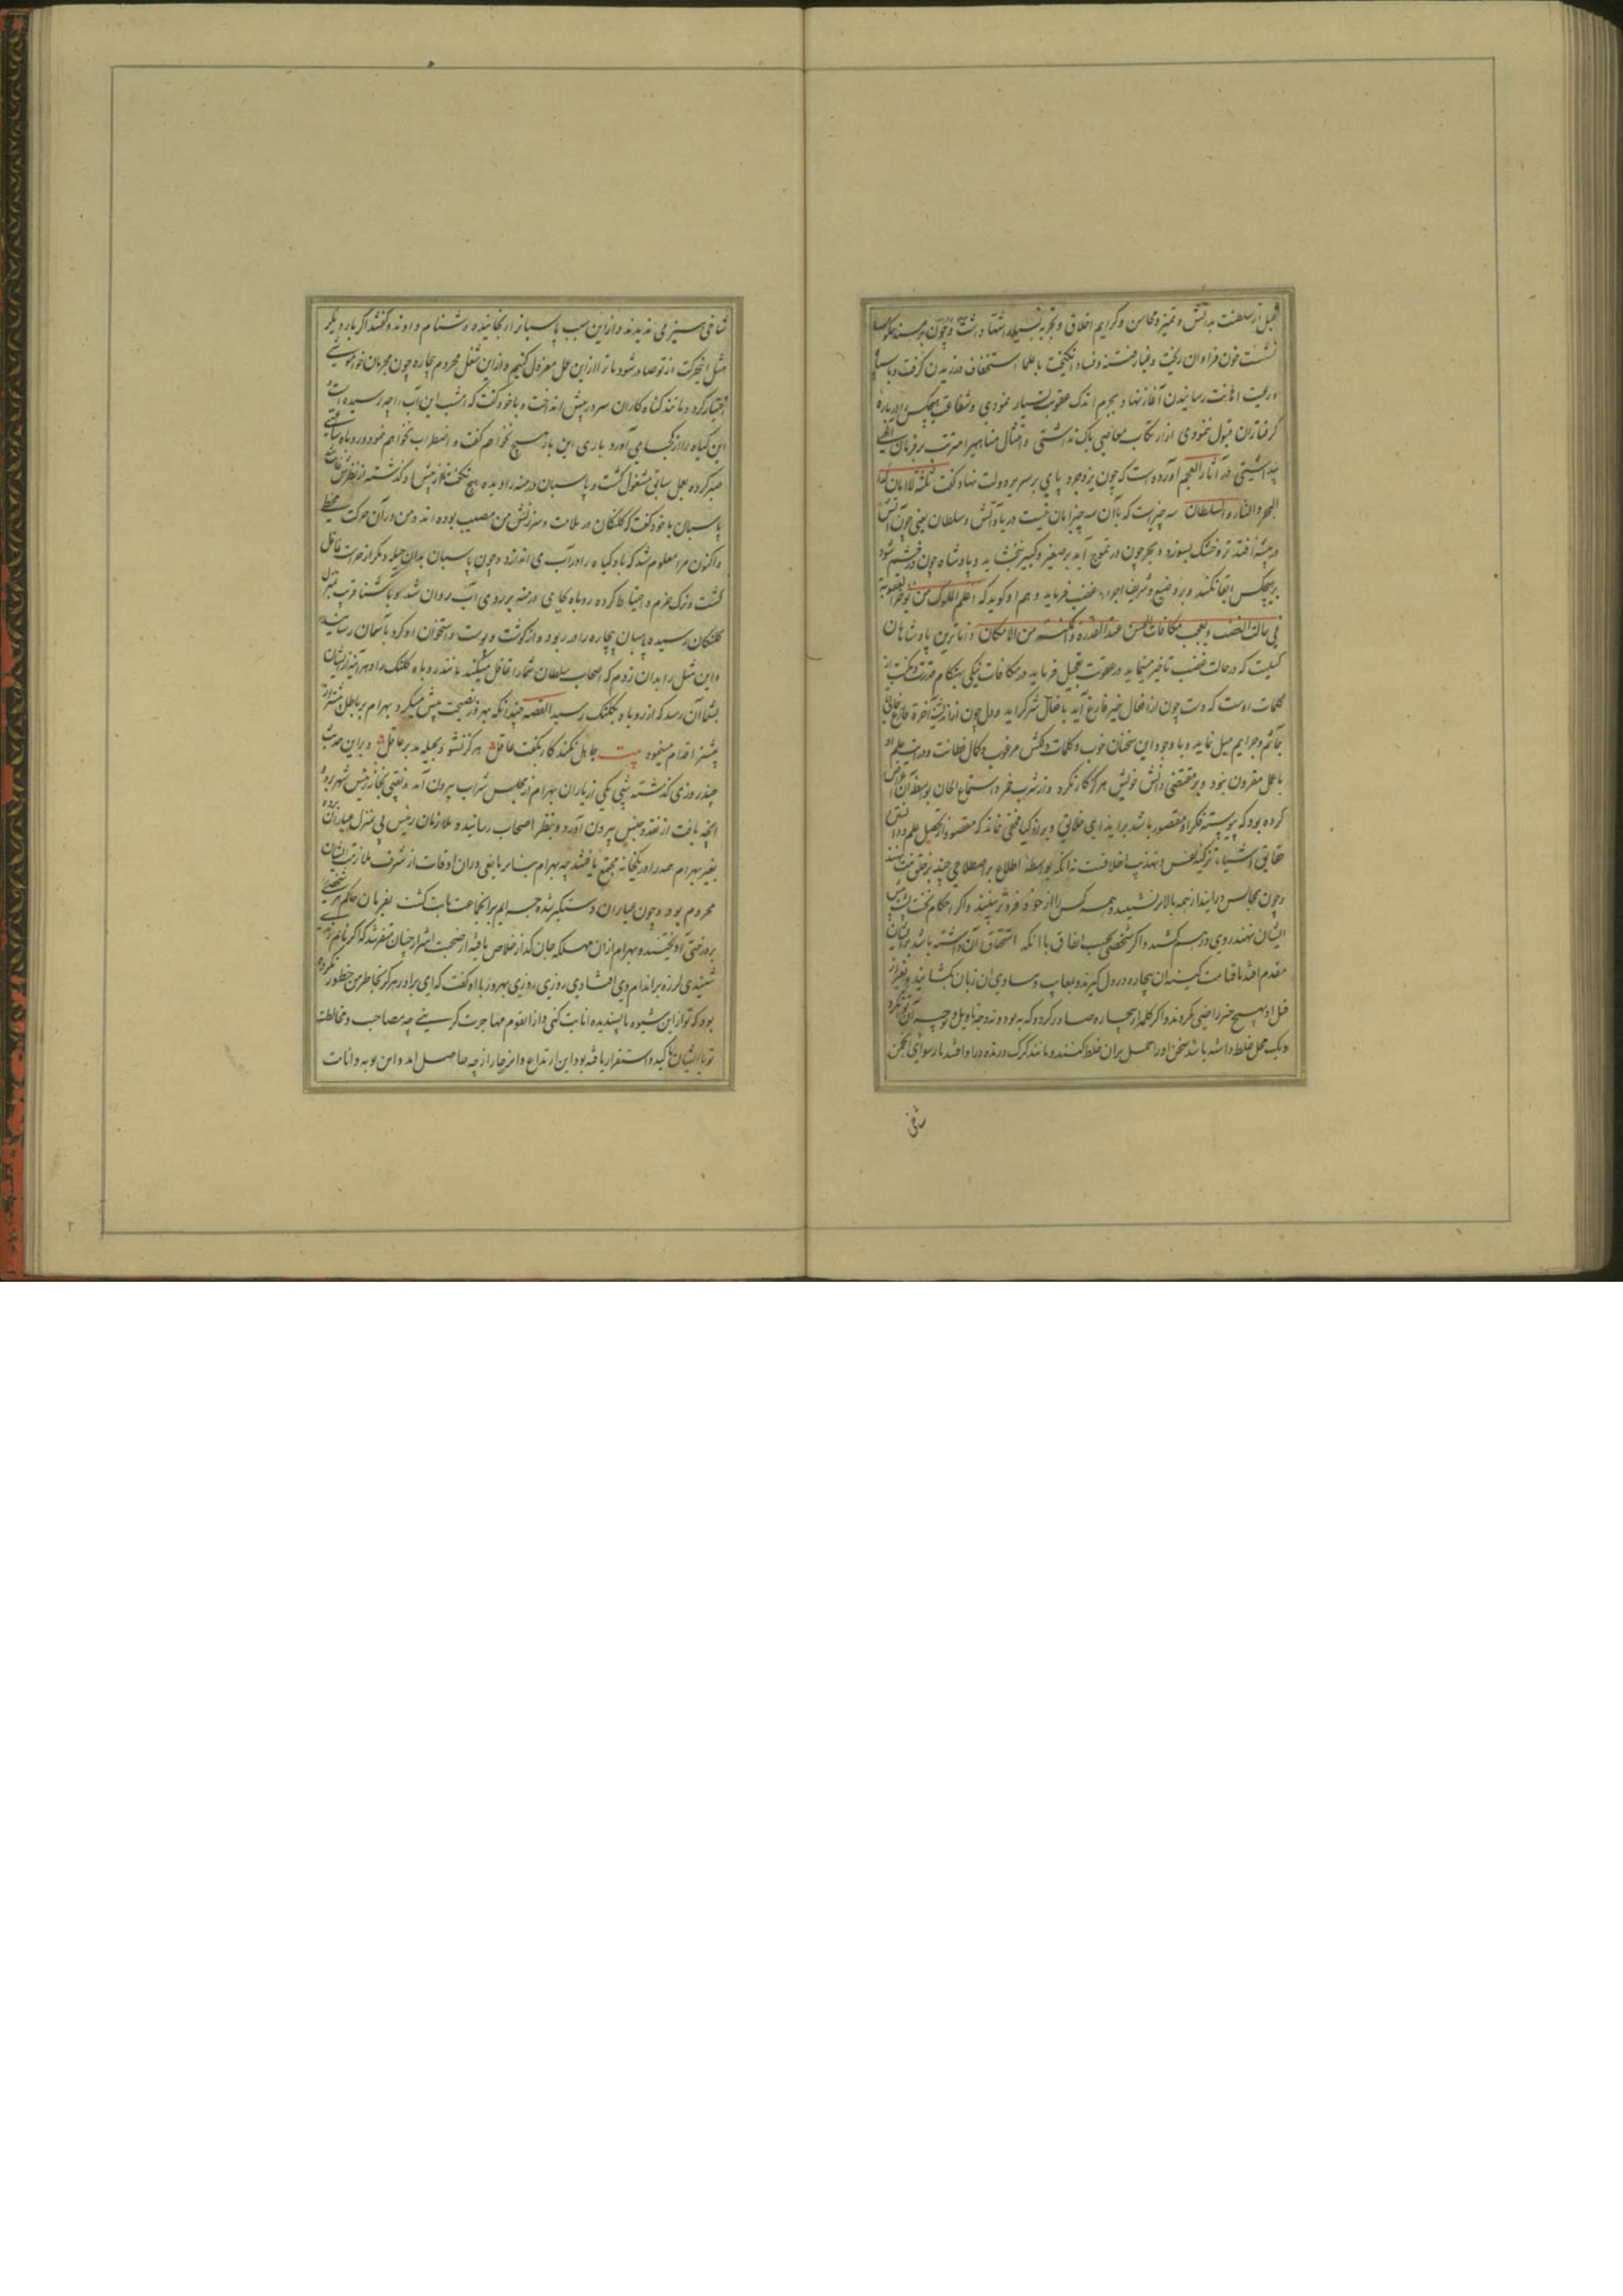 قبل از سلطنت بدانش و تمیز و محاسن و کرایم اخلاق و تجربه اشتهار داشت و چون بر مسند
نشست خون فراوان ریخت و غبار فتنه و فساد انکیخت با علما استخفاف ورزیدن کرفت و با
و رعیت اهانت رسانیدن آغاز نهاد و بجرم اندک عقوبت بسیار نمودی و شفاعت هیچکس در باره
کرفتاران قبول ننمودی از ارتکاب معاصی باک نداشتی و امتثال
پنداشتی در آثار العجم آورده است که چون یزدجرد پای بر سریر دولت نهاد کفت ثلثة لا امان
البحر و النار و السلطان سه چیز است که باآن سه چیز امان نیست دریا و آتش و سلطان یعنی چون آتش
در بیشه افتد تر و خشک بسوزد و بحر چون در تموج آید بر صغیر و کبیر نبخشاید و پادشاه چون در خشم شود
بر هیچکس ابقا نکند و بر وضیع و شریف اجراء غضب فرماید و هم او کوید که اعلم الملوک من یوخر العقوبة
فی حالت الغضب و یعجل مکافات المحسن عند القدره من الامکان و داناترین پادشاهان
کسیست که در حالت غضب تاخیر نماید و در عقوبت تعجیل فرماید در مکافات نیکی بهنکام قدرت و مکنت از
کلمات اوست که دست چون از افعال خیر فارغ آید بافعال شر کراید و دل چون از اندیشه آخرة فارغ
بمآثم و جرایم میل نماید و با وجود این سخنان خوب و کلمات دلکش مرغوب و کمال فطانت و درایت علم او
با عمل مقرون نبود و بر مقتضی دانش خویش هرکز کار نکرد و از شرب خمر و استماع الحان
کرده بود که پیوسته فکر او مقصور باشد بر ایذای خلایق و بر اذکیا مخفی نماند که مقصود از تحصیل علم و دانش
حقایق اشیاء تزکیه نفس و تهذیب اخلاقست نه آنکه بواسطه اطلاع بر اصطلاحی چند بر خلق منت نهند
و چون بمجالس درآیند از همه بالاتر نشینند و همه کس را از خود فروتر بینند و اکر
ایشان نهند روی درهم کشند و اکر شخصی بحسب اتفاق با آنکه استحقاق آن داشته باشد بر ایشان
مقدم افتد تا قیامت کینه آن بیچاره در دل کیرند و بمعایب و مساوی آن زبان بکشایند و بغیر از
قتل او بهیچ چیز راضی نکردند و اکر کلمه از بیچاره صادر کردد که به بود
و یک محل غلط داشته باشد سخن او را حمل بران غلط کنند و مانند کرک درنده درو افتند بارسوای انجمن
شاخی
شاخی سبز می ندیدند و ازین سبب پاسبانرا رنجانیده دشنام دادند و کفتند اکر بار دیکر
مثل این حرکت از تو صادر شود ما ترا ازین عمل معزول کنیم و ازین شغل محروم بیچاره چون مجرمان خاموشی
اختیار کرد و مانند کناه کاران سر در پیش انداخت و با خود کفت که امشب این آب را چه رسیده است
این کیاه را از کجا می آورد باری این بار هیچ نخواهم کفت و اضطراب نخواهم نمود و روباه ساعتی
صبر کرده بعمل سابق مشغول کشت و پاسبان درمنه را دیده هیچ نکفت تا از پیش او کذشته از نظرش غایب
پاسبان با خود کفت که کلنکان در ملامت و سرزنش من مصیب بوده اند و من در آن حرکت مخطی
و اکنون مرا معلوم شد که باد کیاه را در آب می اندازد و چون پاسبان بدان حیله دیکر از حراست غافل
کشت و ترک حزم و احتیاط کرده روباه بجای درمنه بر روی آب روان شد
کلنکان رسیده پاسبان بیچاره را در ربود و از کوشت و پوست و استخوان او کرد بآسمان رسانید
و این مثل را بدان زدم که اصحاب سلطان شما را غافل میکنند مانند روباه کلنک را و هر آینه از ایشان
بشما آن رسد که از روباه بکلنک رسید القصه چندانکه بهروز نصیحت بیش میکرد بهرام بر باطل
بیشتر اقدام مینمود بیت جاهل نکند کار بکفت عاقل هرکز نشود بحیله مدبر عاقل و براین حدیث
چند روزی کذشته شبی یکی از یاران بهرام از مجلس شراب بیرون آمد و نقبی بخانه رئیس شهر برده
آنچه یافت از نقد و جنس بیرون آورد و بنظر اصحاب رسانید و ملازمان رئیس پی بمنزل عیاران برده
بغیر بهرام همه را در یکخانه مجتمع یافتند چه بهرام بنا بر مانعی دران اوقات از شرف ملازمت ایشان
محروم بود و چون عیاران دستکیر شده جرایم بر آنجماعت ثابت کشت بفرمان حاکم هر شخصی را
بر درختی آویختند و بهرام ازان مهلکه جان کداز خلاص یافته از صحبت اشرار چنان متنفر شد که اکر نام
شنیدی لرزه بر اندام وی افتادی روزی بهروز با او کفت که ای برادر هرکز بخاطر من خطور نکرده
بود که تو از این شیوه ناپسندیده انابت کنی و از آن قوم مهاجرت کزینی چه مصاحب و مخالطت
تو با ایشان تاکید و استقرار یافته بود این ارتداع و انزجار از چه حاصل آمد و این توبه و انابت